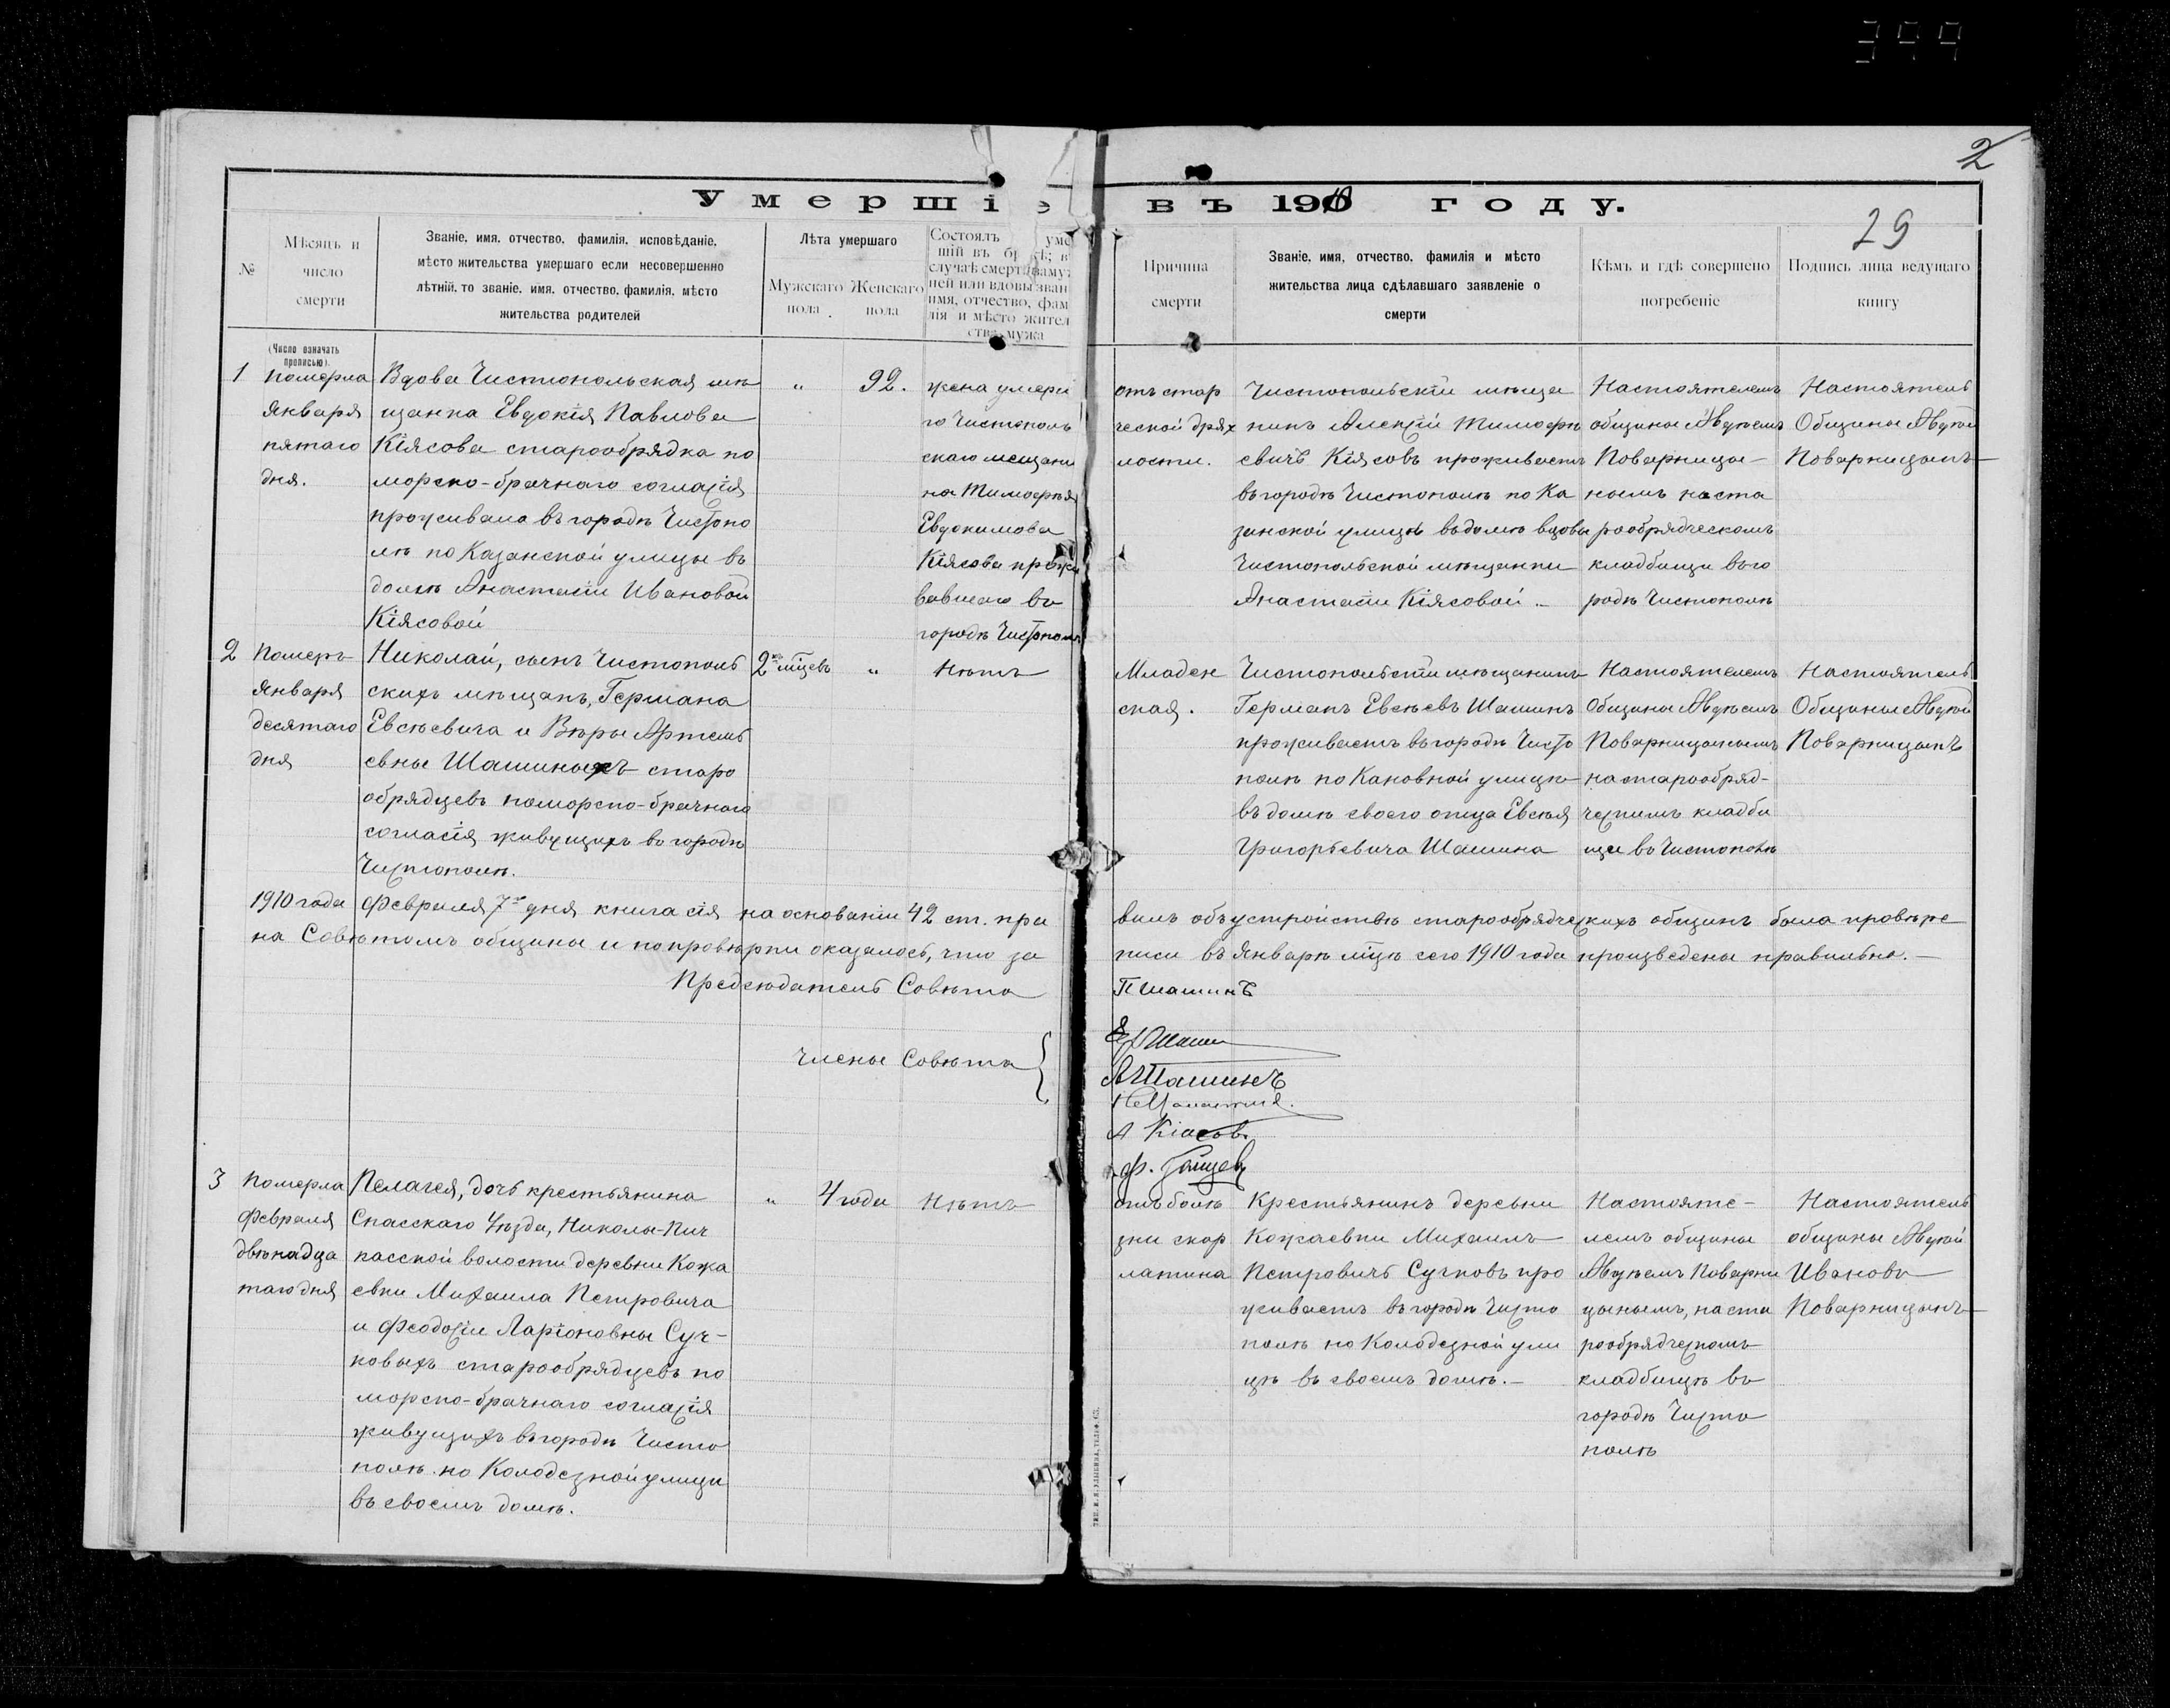 399
2
29
Умершіе въ 1910 году.
№
Мѣсяцъ и
число
смерти
Званіе, имя, отчество, фамилія, исповѣданіе,
мѣсто жительства умершаго если несовершенно
лѣтній, то званіе, имя, отчество, фамилія, мѣсто
жительства родителей
Лѣта умершаго
Мужскаго
пола
Женскаго
пола
Состоялъ уме
шій въ бракѣ; в
случаѣ смерти заму
ней или вдовы зван
имя, отчество, фам
лія и мѣсто жител
ства мужа
Причина
смерти
Званіе, имя, отчество, фамилія и мѣсто
жительства лица сдѣлавшаго заявленіе о
смерти
Кѣмъ и гдѣ совершено
погребеніе
Подпись лица ведущаго
книгу
(Число означать
прописью).
1
Померла
Января
пятаго
дня.
Вдова Чистопольская мѣ
щанка Евдокія Павлова
Кіясова старообрядка по
морско-брачнаго согласія
проживала въ городѣ Чистопо
лѣ по Казанской улицы въ
домѣ Анастасіи Ивановой
Кіясовой
"
92.
жена умерш
го Чистополь
скаго мещани
на Тимофѣя
Евдокимова
Кіясова прожи
вавшаго въ
городѣ Чистополѣ
отъ стар
ческой дрях
лости.
Чистопольскій мѣща
нинъ Алексѣй Тимофѣ
евичъ Кіясовъ проживаетъ
въ городѣ Чистополѣ по Ка
занской улицѣ въ домѣ вдовы
Чистопольской мѣщанки
Анастасіи Кіясовой.-
Настоятелемъ
общины Авдѣемъ
Поварницы-
нымъ на ста
рообрядческомъ
кладбищи въ го
родѣ Чистополѣ
Настоятель
Общины Авдѣй
Поварницынъ
2
Померъ
Января
десятаго
дня
Николай, сынъ Чистополь
скихъ мѣщанъ, Германа
Евсѣевича и Вѣры Артемь
евны Шашиныхъ старо
обрядцевъ поморско-брачнаго
согласія живущихъ въ городѣ
Чистополѣ.
2хъ мцѣвъ
"
Нѣтъ
Младен
ская.
Чистопольскій мѣщанинъ
Германъ Евсѣевъ Шашинъ
проживаетъ въ городѣ Чисто
полѣ по Кановной улицѣ
въ домѣ своего отца Евсѣя
Григорьевича Шашина
Настоятелемъ
Общины Авдѣемъ
Поварницынымъ
на старообряд-
ческимъ кладби
ще въ Чистополѣ
Настоятель
Общины Авдѣй
Поварницынъ
1910 года Февраля 7го дня книга сія на основаніи 42 ст. пра
вилъ объ устройствѣ старообрядческихъ общинъ была провѣре
на Совѣтомъ общины и по провѣрки оказалось, что за
писи въ Январѣ мцѣ сего 1910 года произведены правильно.-
Предсѣдатель Совѣта
П Шашинъ
Члены Совѣта
Шашин
А Шашинъ
А Кіасовъ
3
Померла
Февраля
двѣнадца
таго дня
Пелагея, дочь крестьянина
Спасскаго Уѣзда, Никола-Пич
касской волости деревни Кожа
евки Михаила Петровича
и Феодосіи Ларіоновны Суч-
ковыхъ старообрядцевъ по
морско-брачнаго согласія
живущихъ въ городѣ Чисто
полѣ по Колодезной улицы
въ своемъ домѣ.
"
4 года
Нѣтъ
отъ болѣ
зни скар
латина
Крестьянинъ деревни
Кожаевки Михаилъ
Петровичъ Сучковъ про
живаетъ въ городѣ Чисто
полѣ по Колодезной ули
цѣ въ своемъ домѣ.-
Настояте-
лемъ общины
Авдѣемъ Поварни
цынымъ, на ста
рообрядческомъ
кладбищѣ въ
городѣ Чисто
полѣ
Настоятель
общины Авдѣй
Ивановъ
Поварницынъ